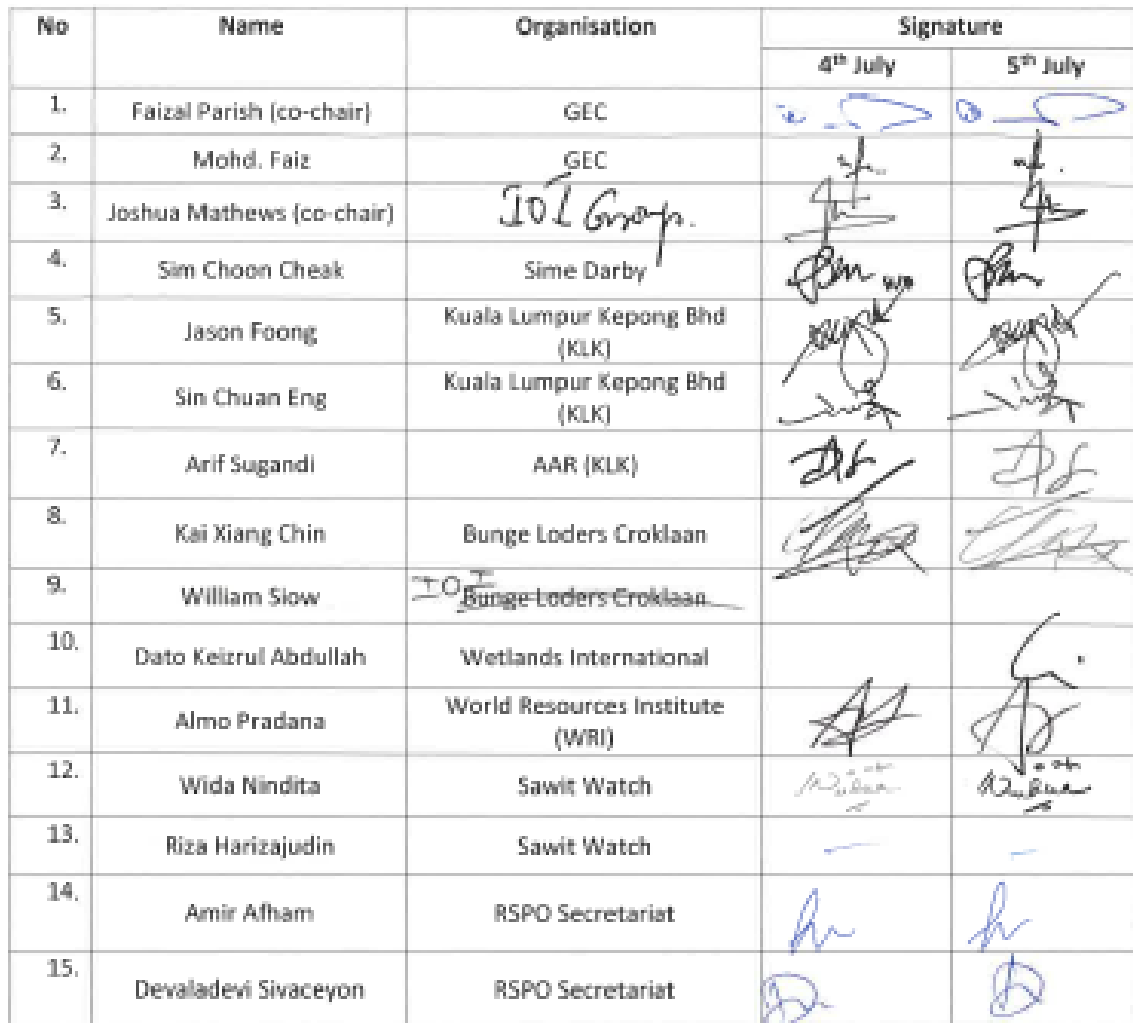 No Name Organisation Signature
4th July 5th July
1. Faizal Parish (co-chair) GEC
2. Mohd. Faiz GEC
3. Joshua Mathews (co-chair) IOI Group.
4. Sim Choon Cheak Sime Darby
5. Jason Foong Kuala Lumpur Kepong Bhd
(KLK)
6. Sin Chuan Eng Kuala Lumpur Kepong Bhd
(KLK)
7. Arif Sugandi AAR (KLK)
8. Kai Xiang Chin Bunge Loders Croklaan
9. William Siow IOI Bunge Loders Croklaan
10. Dato Keizrul Abdullah Wetlands International
11. Almo Pradana World Resources Institute
(WRI)
12. Wida Nindita Sawit Watch
13. Riza Harizajudin Sawit Watch
14. Amir Afham RSPO Secretariat
15. Devaladevi Sivaceyon RSPO Secretariat